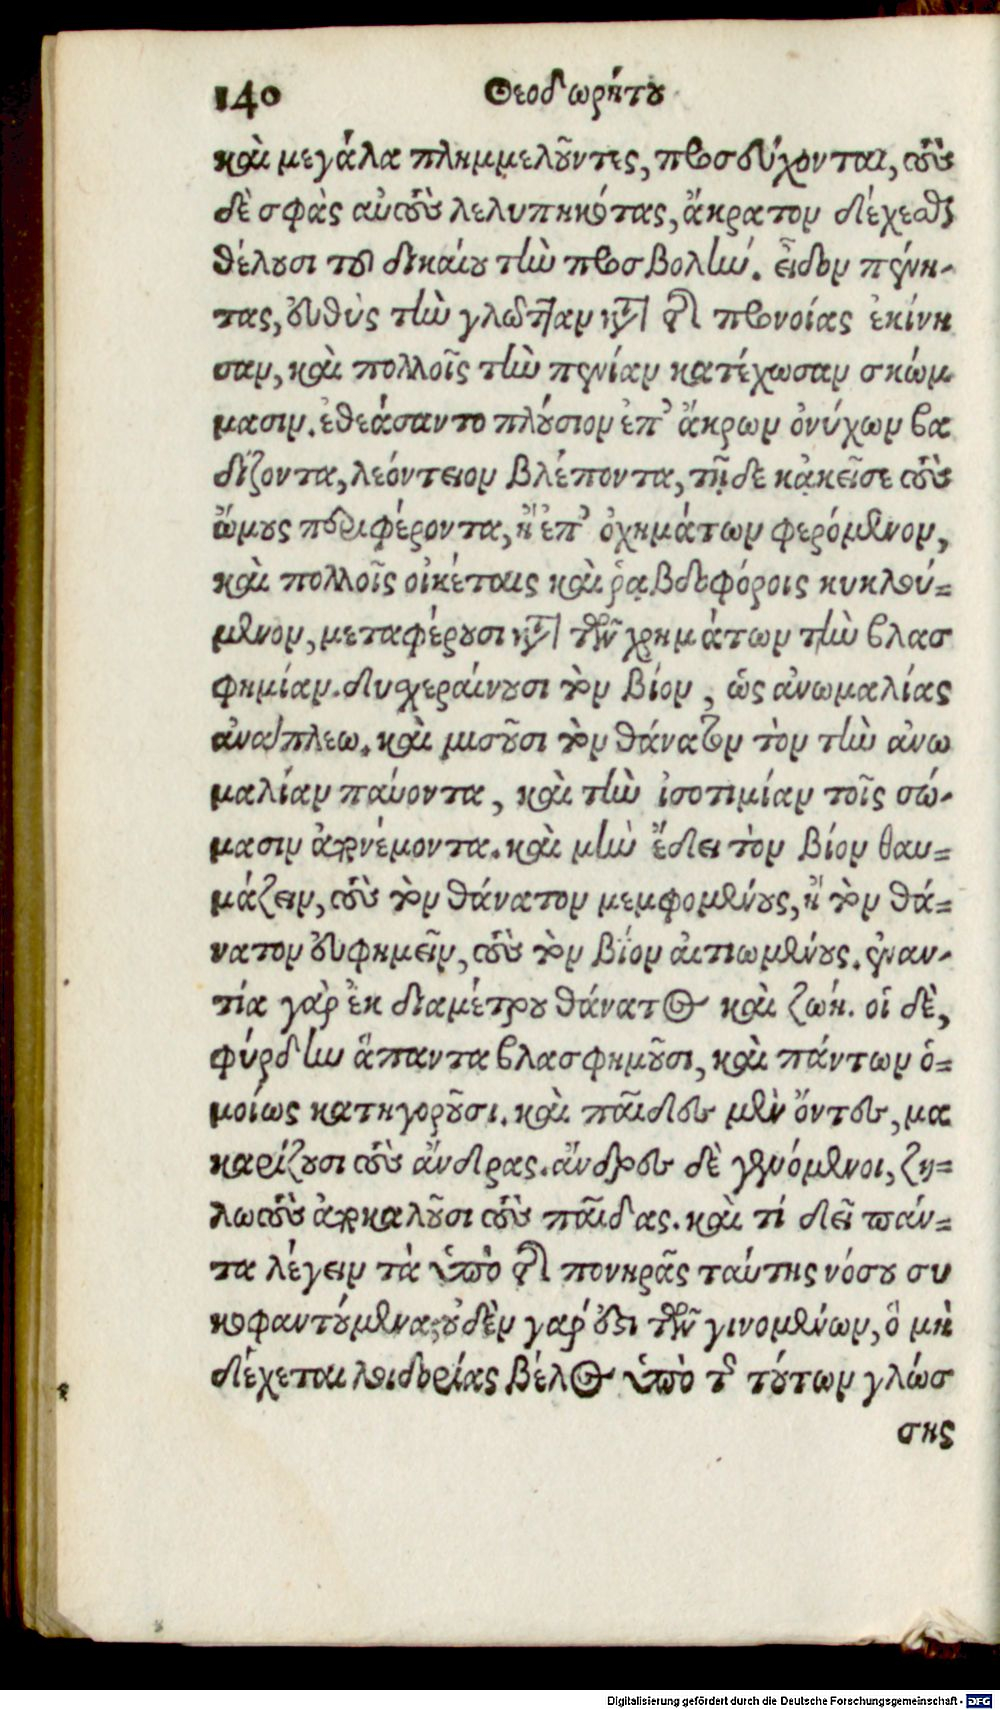 140 Θεοδωρήτου
καὶ μεγάλα πλημμελοῦντες, προσεύχονται, τοὺς
δὲ σφᾶς αὐτοὺς λελυπηκότας, ἄκρατον δέχεσθαι
θέλουσι τοῦ δικαίου τὴν προσβολήν. εἶδον πένη-
τας, εὐθὺς τὴν γλῶτταν κατὰ τῆς προνοίας ἐκίνη
σαν, καὶ πολλοῖς τὴν πενίαν κατέχωσαν σκώμ
μασιν. ἐθεάσαντο πλούσιον ἐπ' ἄκρων ὀνύχων βα
δίζοντα, λεόντειον βλέποντα, τῇδε κἀκεῖσε τοὺς
ὤμους περιφέροντα, ἢ ἐπ' ὀχημάτων φερόμενον,
καὶ πολλοῖς οἰκέταις καὶ ῥαβδοφόροις κυκλού-
μενον, μεταφέρουσι κατὰ τῶν χρημάτων τὴν βλασ
φημίαν. δυσχεραίνουσι τὸν βίον, ὡς ἀνωμαλίας
ἀνάπλεω. καὶ μισοῦσι τὸν θάνατον τὸν τὴν ἀνω
μαλίαν παύοντα, καὶ τὴν ἰσοτιμίαν τοῖς σώ-
μασιν ἀπονέμοντα. καὶ μὴν ἔδει τὸν βίον θαυ-
μάζειν, τοὺς τὸν θάνατον μεμφομένους, ἢ τὸν θά-
νατον εὐφημεῖν, τοὺς τὸν βίον αἰτιωμένους. ἐναν-
τία γὰρ ἐκ διαμέτρου θάνατος καὶ ζωή. οἱ δὲ,
φύρδην ἅπαντα βλασφημοῦσι, καὶ πάντων ὁ-
μοίως κατηγοροῦσι. καὶ παῖδες μὲν ὄντες, μα
καρίζουσι τοὺς ἄνδρας. ἄνδρες δὲ γενόμενοι, ζη-
λωτοὺς ἀποκαλοῦσι τοὺς παῖδας. καὶ τί δεῖ πάν-
τα λέγειν τὰ ὑπὸ τῆς πονηρᾶς ταύτης νόσου συ
κοφαντούμενα; οὐδὲν γάρ ἐστι τῶν γινομένων, ὃ μὴ
δέχεται λοιδορίας βέλος ὑπὸ τῆς τούτων γλώσ
σης
Digitalisierung gefördert durch die Deutsche Forschungsgemeinschaft - DFG